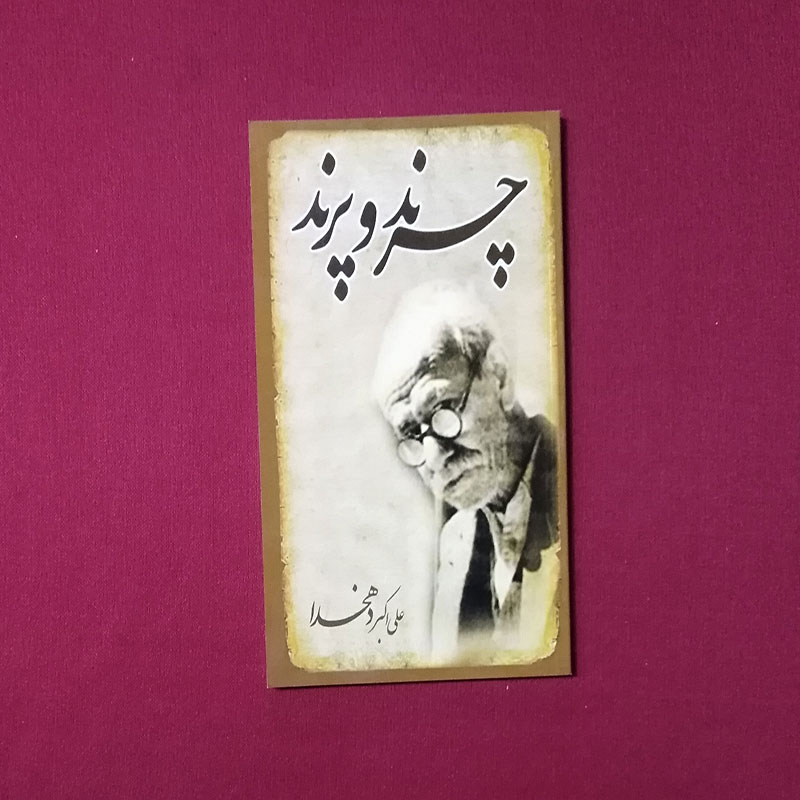 چرند و پرند
علی اکبر دهخدا